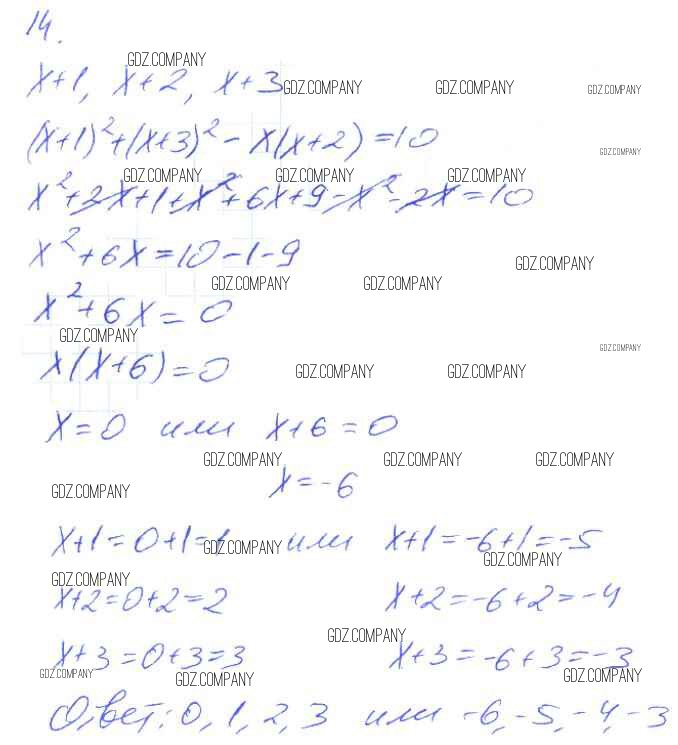 14.
GDZ.COMPANY
x+1, x+2, x+3 GDZ.COMPANY GDZ.COMPANY GDZ.COMPANY
(x+1)²+(x+3)² - x(x+2)=10
GDZ.COMPANY
GDZ.COMPANY GDZ.COMPANY GDZ.COMPANY
x²+2x+1+x²+6x+9-x²-2x=10
x²+6x=10-1-9
GDZ.COMPANY
GDZ.COMPANY GDZ.COMPANY
x²+6x=0
GDZ.COMPANY
GDZ.COMPANY
x(x+6)=0 GDZ.COMPANY GDZ.COMPANY
x=0 или x+6=0
GDZ.COMPANY GDZ.COMPANY GDZ.COMPANY
x=-6
GDZ.COMPANY
x+1=0+1=1 GDZ.COMPANY или x+1=-6+1=-5
GDZ.COMPANY
GDZ.COMPANY
x+2=0+2=2 x+2=-6+2=-4
GDZ.COMPANY
x+3=0+3=3 x+3=-6+3=-3
GDZ.COMPANY GDZ.COMPANY GDZ.COMPANY
Ответ: 0, 1, 2, 3 или -6,-5,-4,-3